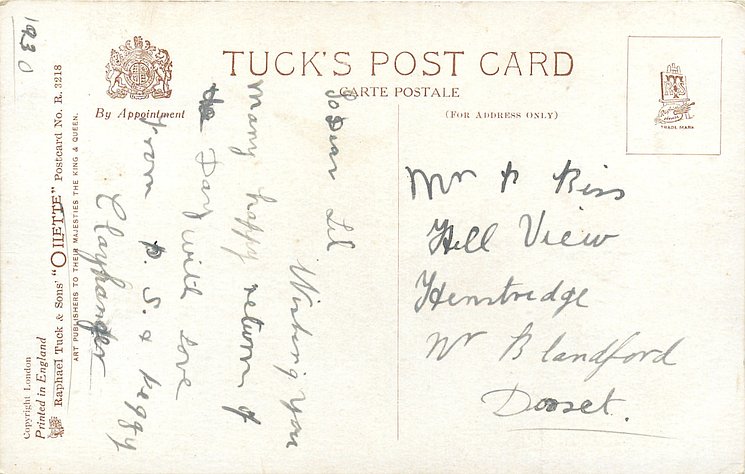 1930
TUCK'S POST CARD
CARTE POSTALE
By Appointment
(FOR ADDRESS ONLY)
TRADE MARK
Copyright London
Printed in England
Raphael Tuck & Sons' "OILETTE" Postcard No. R. 3218
ART PUBLISHERS TO THEIR MAJESTIES THE KING & QUEEN.
To Dear Lil
Wishing you
many happy return of
the Day with love
from P. S. & Peggy
Clayhanger
Mr P Biss
Hill View
Henstridge
Nr Blandford
Dorset.